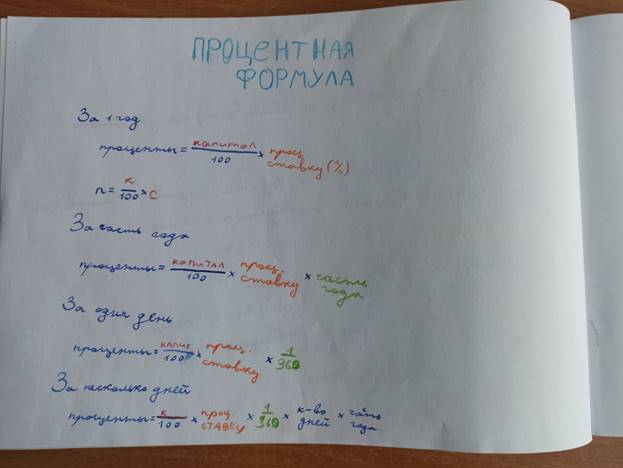 ПРОЦЕНТНАЯ
ФОРМУЛА
За 1 год
проценты = капитал/100 × проц. ставку (%)
п = к/100 × С
За часть года
проценты = капиТАЛ/100 × проц. ставку × часть года
За один день
проценты = КАПИТ/100 × проц. ставку × 1/360
За несколько дней
проценты = к/100 × проц. СТАВКУ × 1/360 × к-во дней × года